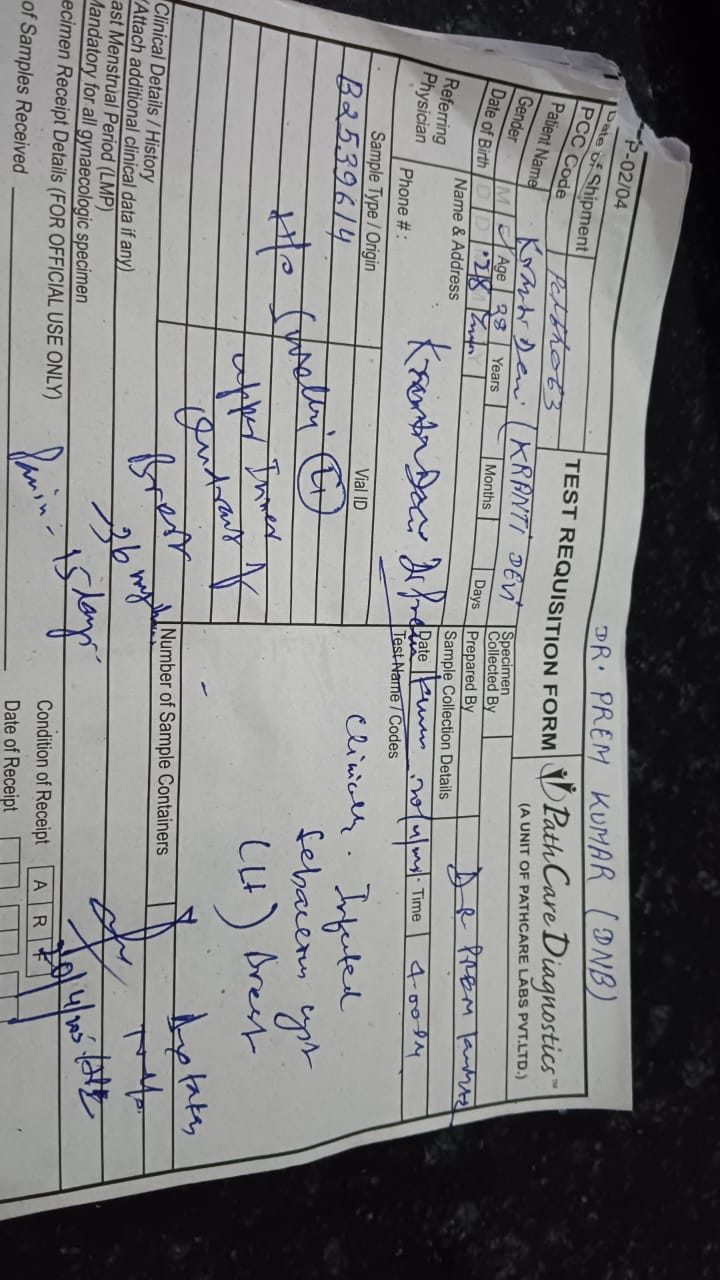 P-02/04
DR. PREM KUMAR (DNB)
Date of Shipment
TEST REQUISITION FORM
PathCare Diagnostics™
(A UNIT OF PATHCARE LABS PVT.LTD.)
PCC Code
Patient Name Kranti Devi (KRANTI DEVI
Gender M Age 28 Years Months Days
Specimen Collected By
Date of Birth D D 28
Prepared By DR PREM Kumar
Referring Physician
Name & Address
Kranti Devi
Sample Collection Details
Phone #:
Date Time 4-00PM
Sample Type / Origin
Vial ID
Test Name / Codes
B2539614
H/o Swelling
upper Inner
Quadrant of
Breast
36
Pain - 15 days
Clinically. Infected
Sebaceous cyst
(Lt) Breast
Clinical Details / History
(Attach additional clinical data if any)
Number of Sample Containers
ast Menstrual Period (LMP)
Mandatory for all gynaecologic specimen
ecimen Receipt Details (FOR OFFICIAL USE ONLY)
Condition of Receipt A R
of Samples Received
Date of Receipt